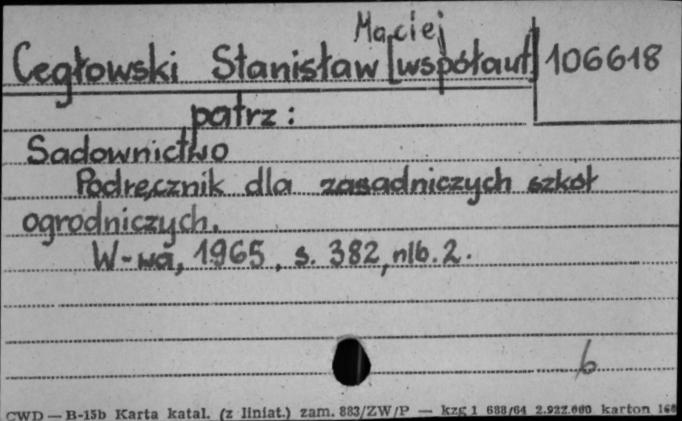 Maciej
Cegłowski Stanisław [współaut] 106618
patrz:
Sadownictwo
Podręcznik dla zasadniczych szkół
ogrodniczych.
W-wa, 1965, s. 382, nlb. 2.
b
CWD — B-15b Karta katal. (z liniat.) zam. 883/ZW/P — kzg 1 688/64 2.922.000 karton